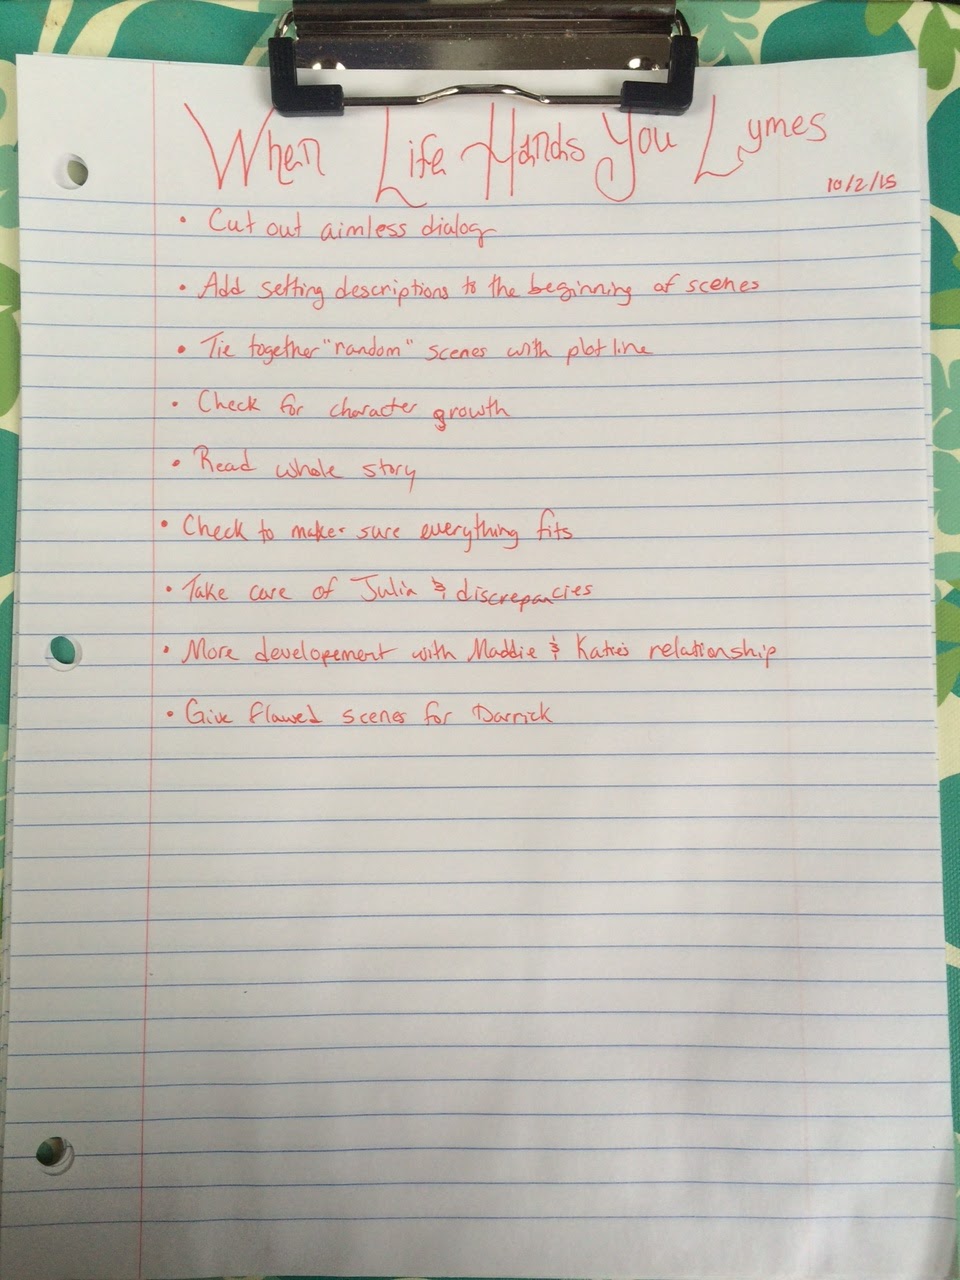 When Life Hands You Lymes
10/2/15
• Cut out aimless dialog
• Add setting descriptions to the beginning of scenes
• Tie together "random" scenes with plot line
• Check for character growth
• Read whole story
• Check to make sure everything fits
• Take care of Julia & discrepancies
• More developement with Maddie & Katie's relationship
• Give flawed scenes for Darrick